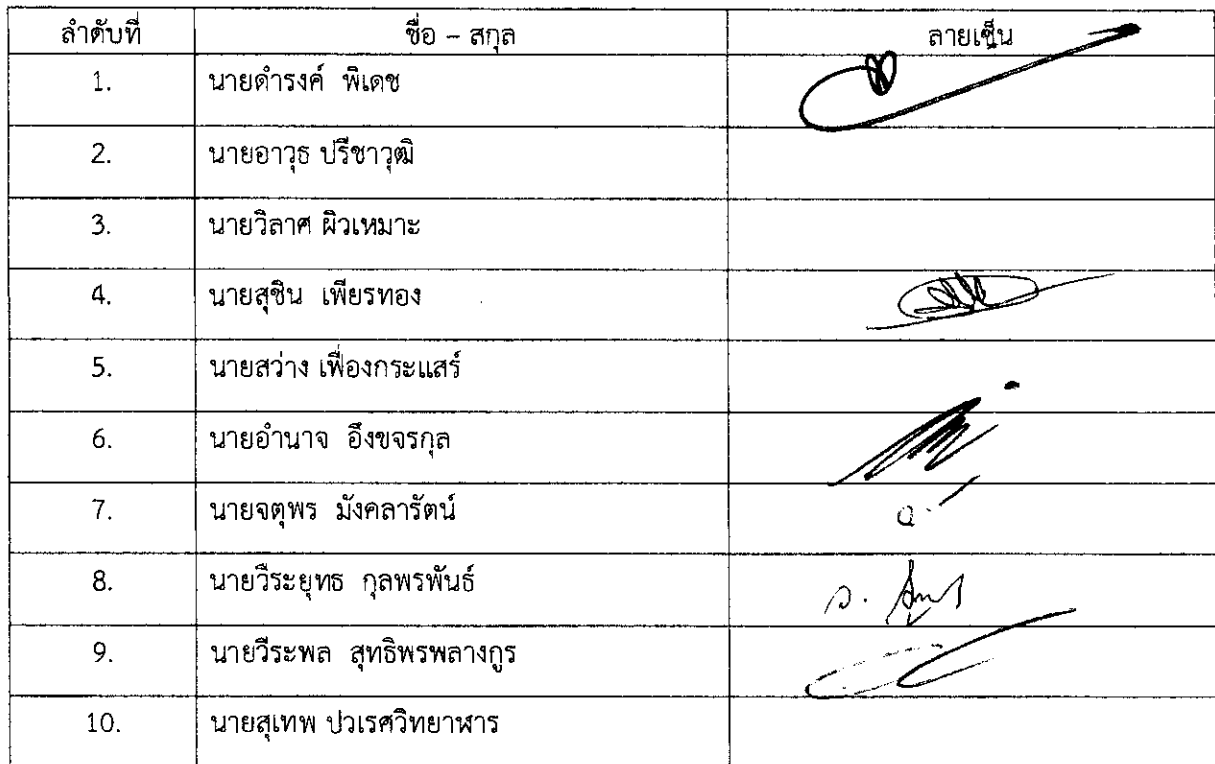 ลำดับที่ ชื่อ – สกุล ลายเซ็น
1. นายดำรงค์ พิเดช
2. นายอาวุธ ปรีชาวุฒิ
3. นายวิลาศ ผิวเหมาะ
4. นายสุชิน เพียรทอง
5. นายสว่าง เฟื่องกระแสร์
6. นายอำนาจ อึงขจรกุล
7. นายจตุพร มังคลารัตน์
8. นายวีระยุทธ กุลพรพันธ์
9. นายวีระพล สุทธิพรพลางกูร
10. นายสุเทพ ปวเรศวิทยาหาร